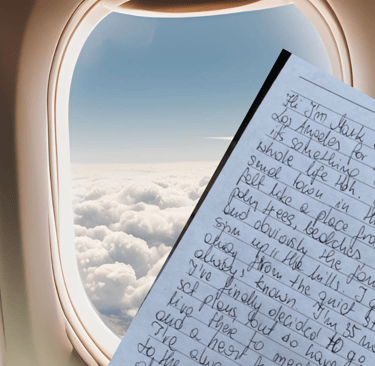 Hi I'm Mark
Los Angeles for
it's something
whole life
small town in th
felt like a place from
palm trees, beaches
and obviously the fam
sign up in the hills. I g
away from the quiet st
always known I'm 35 no
I've finally decided to go
set plans but do have
like there to me
and a heart
I've alway
to the